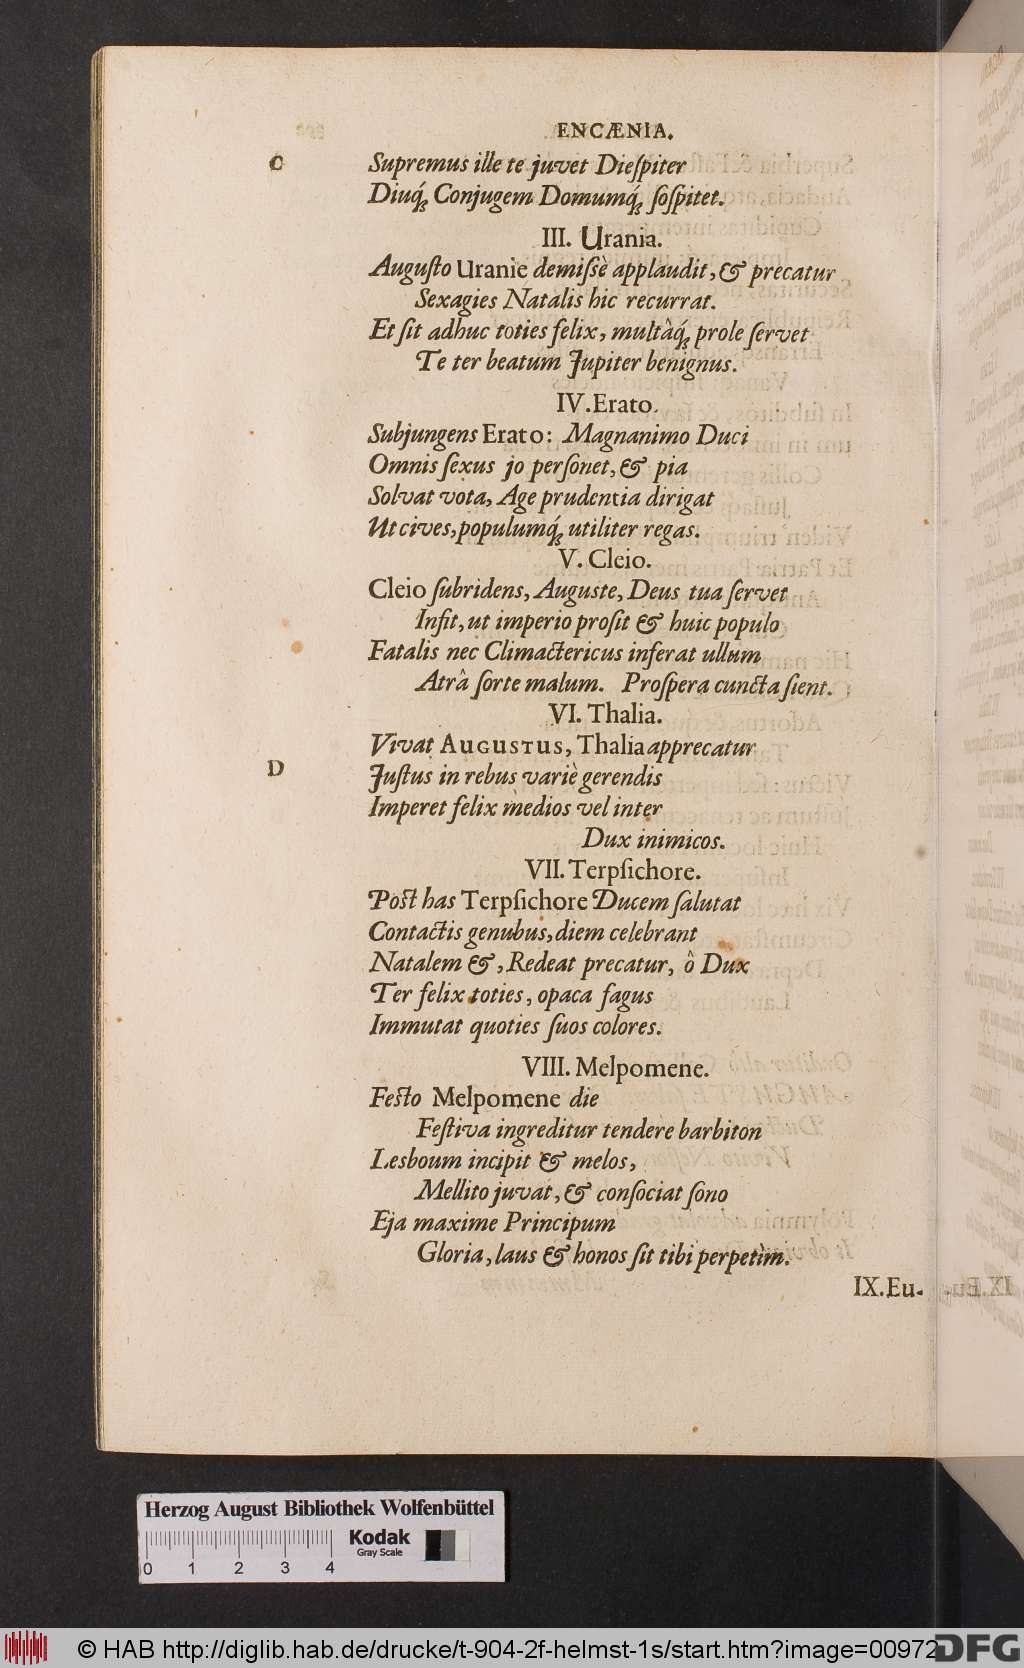 ENCÆNIA.
C
Supremus ille te juvet Dieſpiter
Diuq́; Conjugem Domumq́; ſoſpitet.
III. Urania.
Auguſto Uranie demiſsè applaudit, & precatur
Sexagies Natalis hic recurrat.
Et ſit adhuc toties felix, multâq́; prole ſervet
Te ter beatum Jupiter benignus.
IV. Erato.
Subjungens Erato: Magnanimo Duci
Omnis ſexus jo perſonet, & pia
Solvat vota, Age prudentia dirigat
Ut cives, populumq́; utiliter regas.
V. Cleio.
Cleio ſubridens, Auguste, Deus tua ſervet
Inſit, ut imperio proſit & huic populo
Fatalis nec Climactericus inferat ullum
Atrâ ſorte malum. Proſpera cuncta ſient.
VI. Thalia.
Vivat AUGUSTUS, Thalia apprecatur
D
Juſtus in rebus variè gerendis
Imperet felix medios vel inter
Dux inimicos.
VII. Terpſichore.
Post has Terpſichore Ducem ſalutat
Contactis genubus, diem celebrant
Natalem &, Redeat precatur, ô Dux
Ter felix toties, opaca fagus
Immutat quoties ſuos colores.
VIII. Melpomene.
Festo Melpomene die
Feſtiva ingreditur tendere barbiton
Lesboum incipit & melos,
Mellito juvat, & conſociat ſono
Eja maxime Principum
Gloria, laus & honos ſit tibi perpetìm.
IX. Eu-
Herzog August Bibliothek Wolfenbüttel
Kodak
Gray Scale
0 1 2 3 4
© HAB http://diglib.hab.de/drucke/t-904-2f-helmst-1s/start.htm?image=00972
DFG